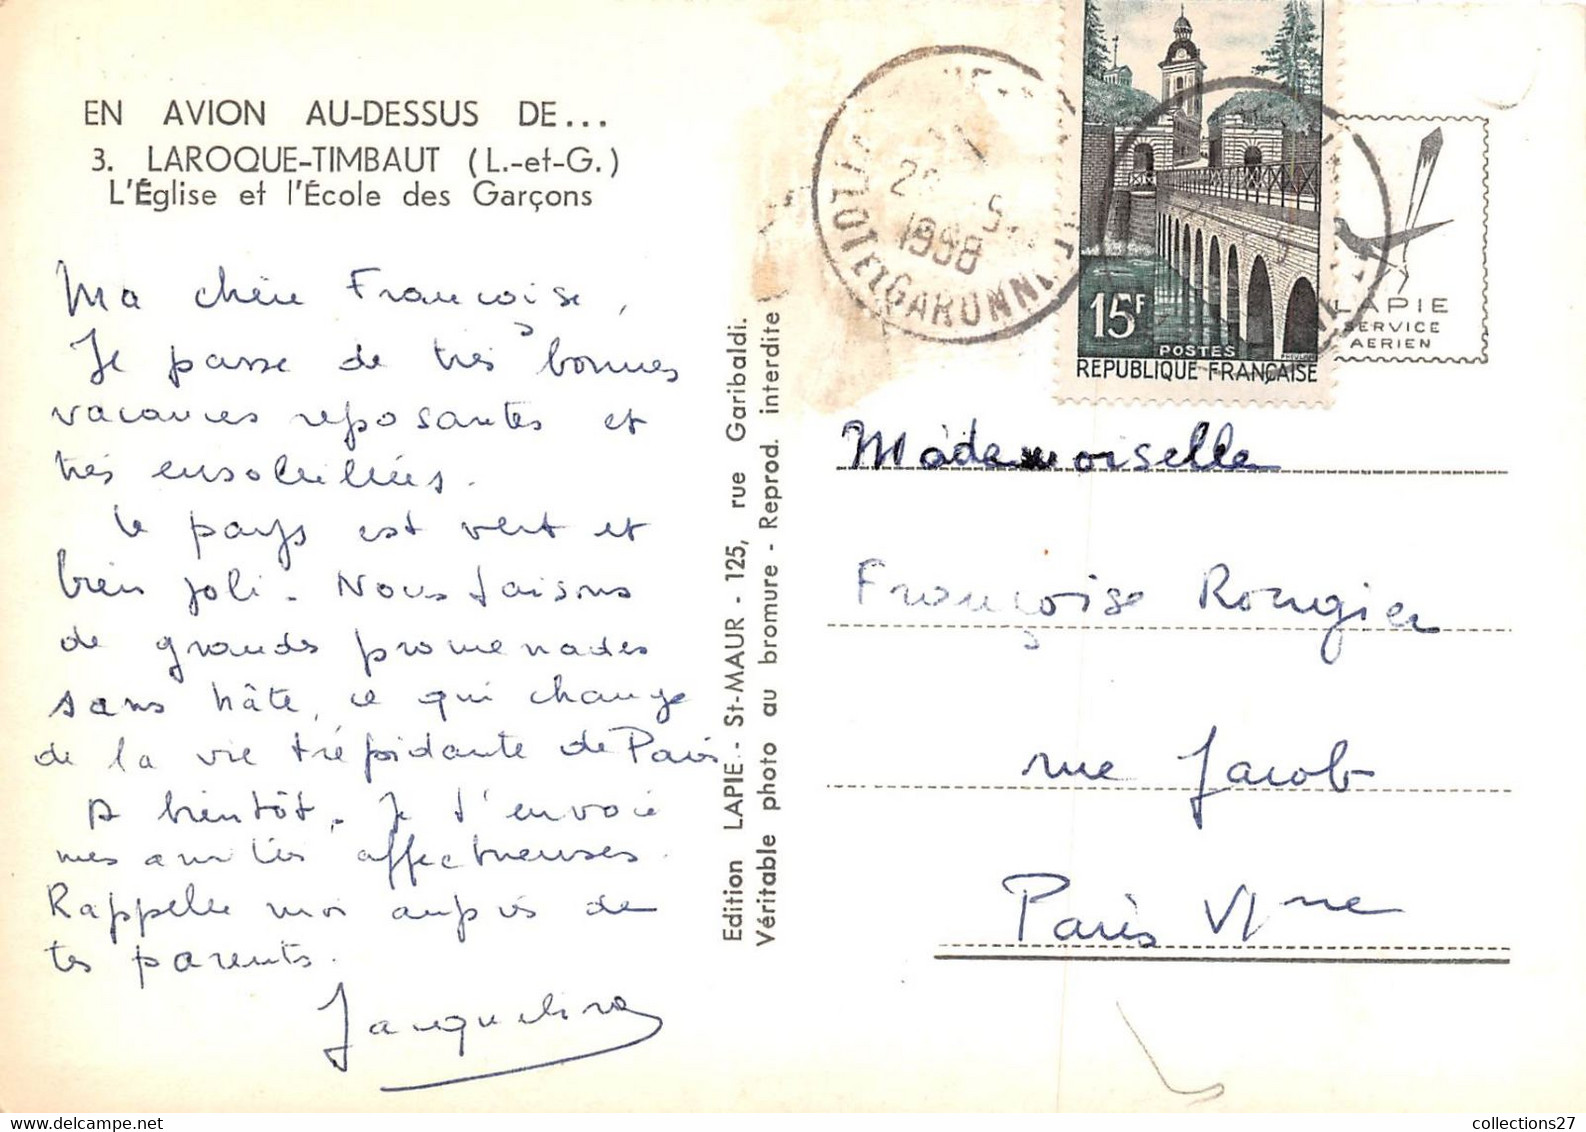 EN AVION AU-DESSUS DE...
3. LAROQUE-TIMBAUT (L.-et-G.)
L'Église et l'École des Garçons
Ma chère Françoise,
Je passe de très bonnes
vacances reposantes et
très ensoleillées.
Le pays est vert et
bien joli - Nous faisons
de grandes promenades
sans hâte, ce qui change
de la vie trépidante de Paris
A bientôt. Je t'envoie
mes amitiés affectueuses.
Rappelle moi auprès de
tes parents.
Jacqueline
Edition LAPIE - St-MAUR - 125, rue Garibaldi.
Véritable photo au bromure - Reprod. interdite
LOT ET GARONNE
1958
15F
POSTES
REPUBLIQUE FRANÇAISE
LAPIE
SERVICE
AERIEN
Mademoiselle
Françoise Rougier
rue Jacob
Paris VIme
collections27